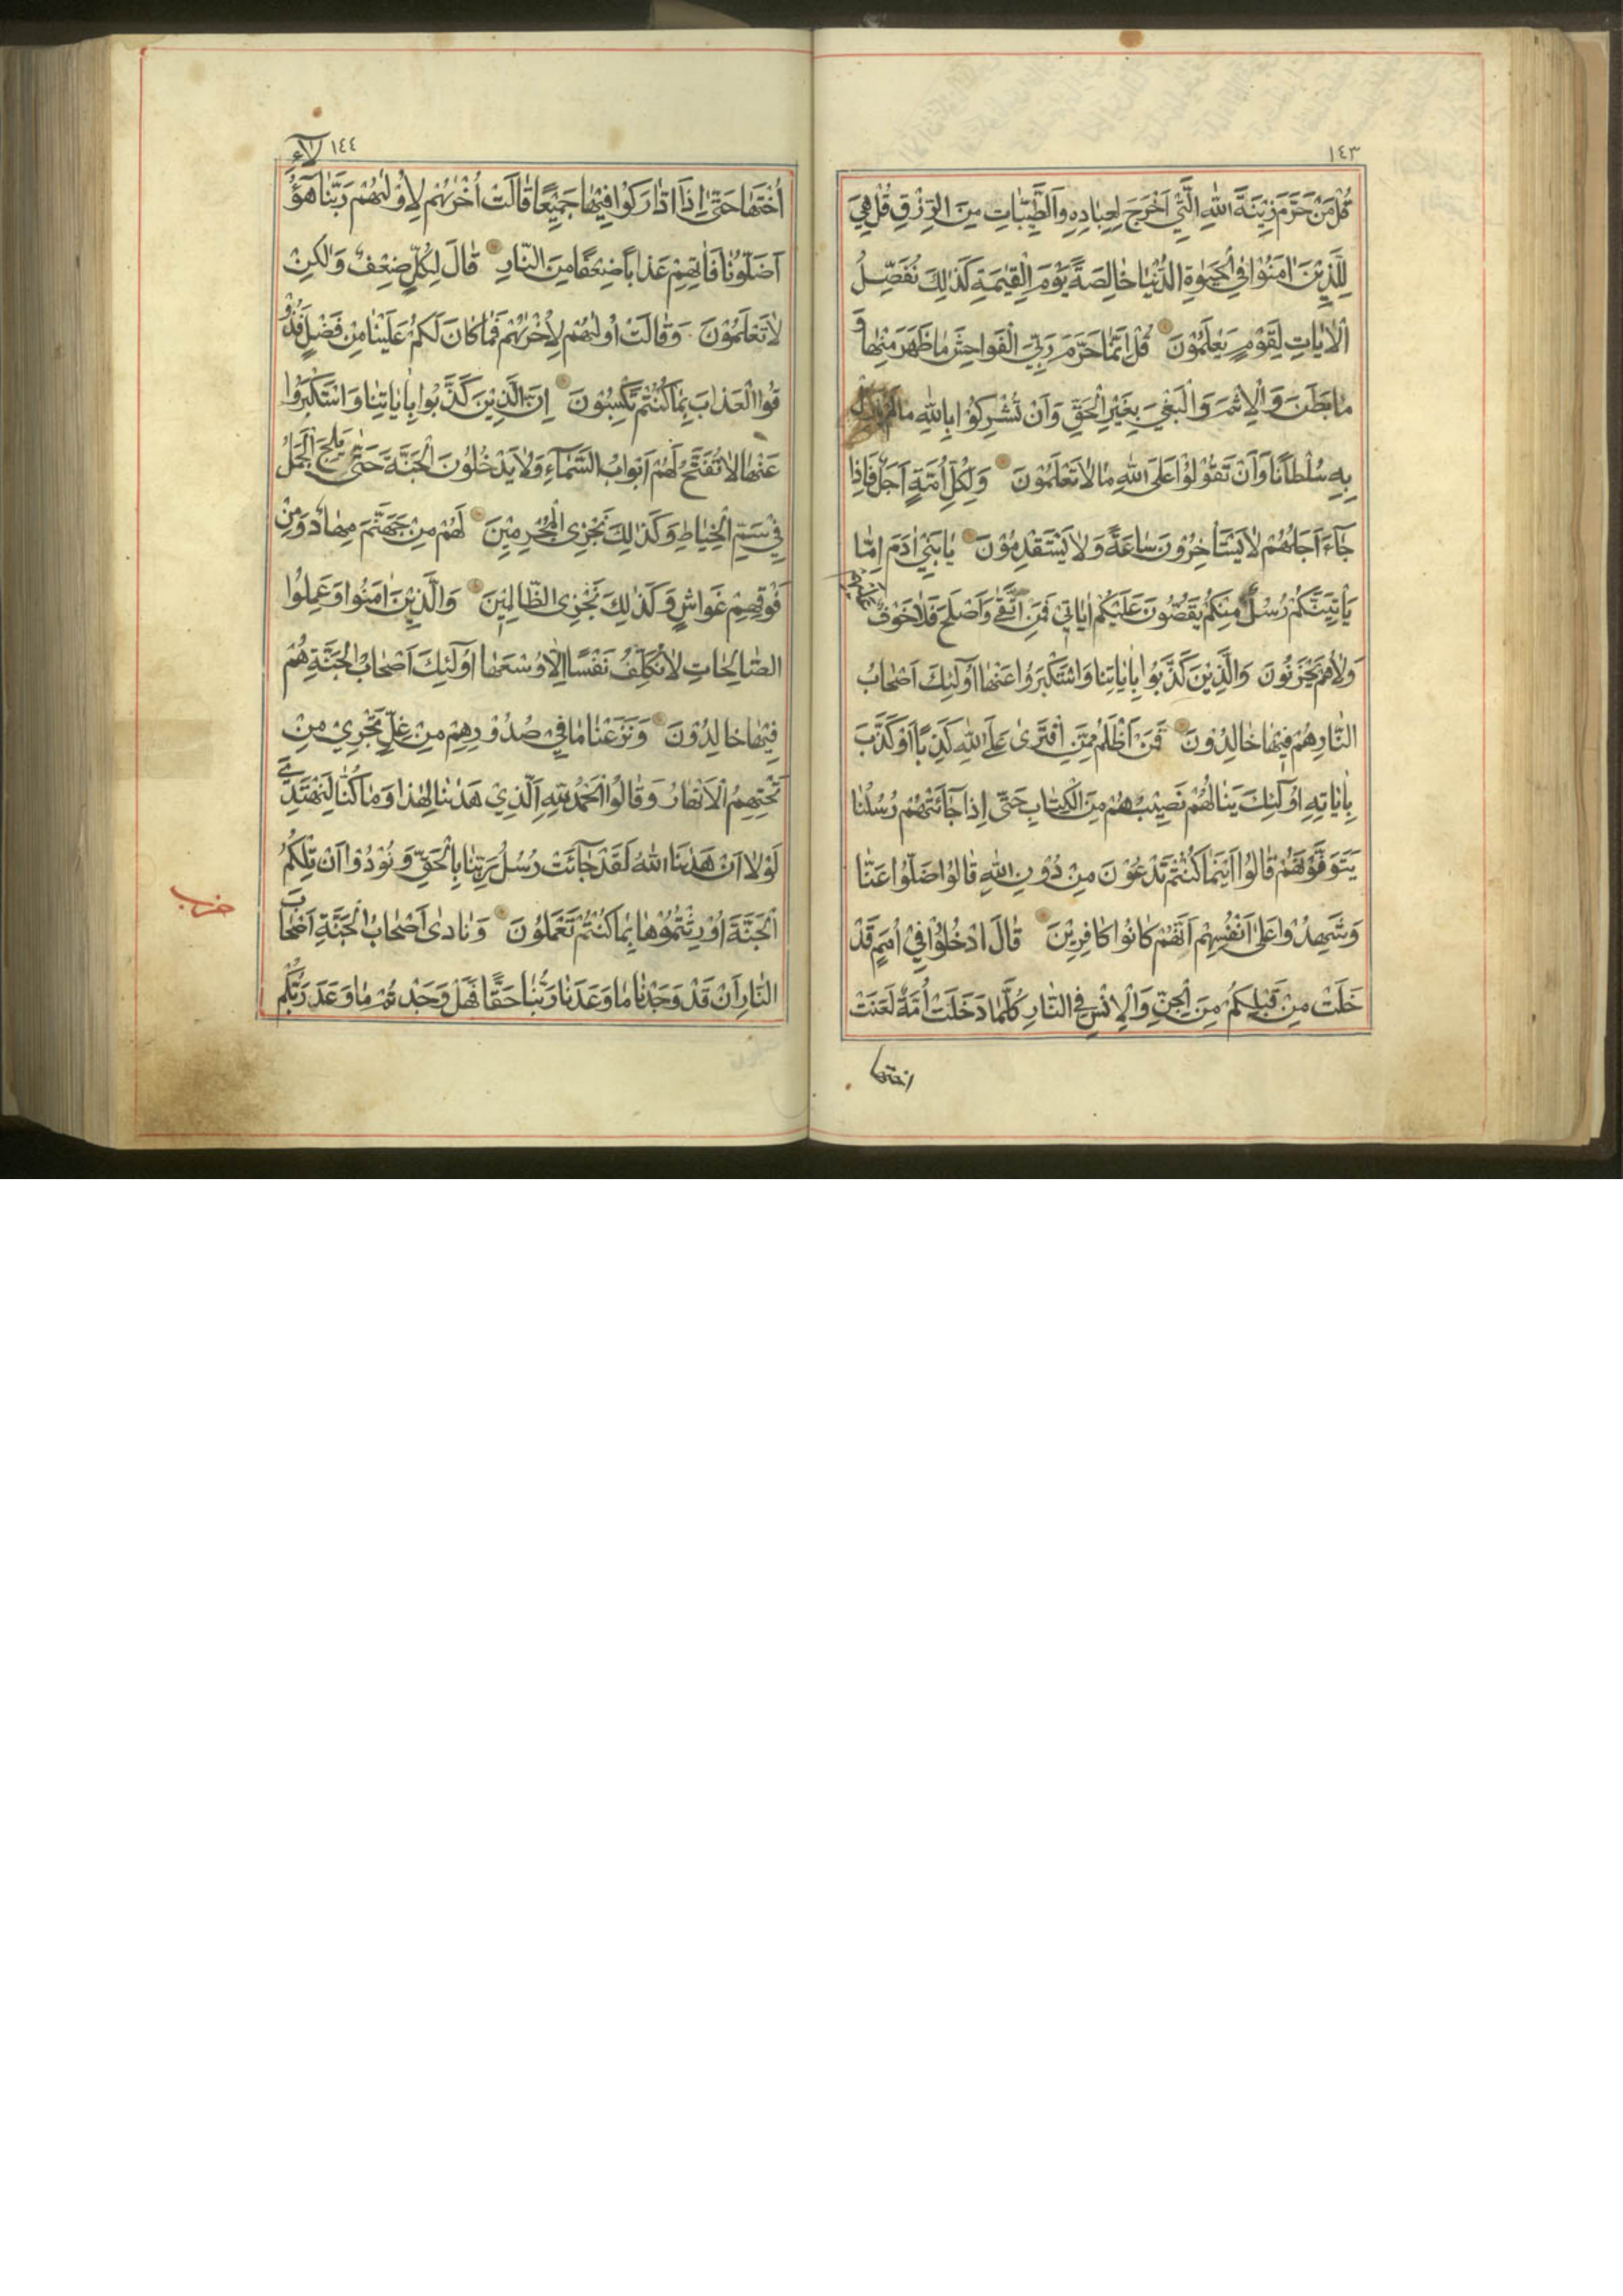 ١٤٣
قُلْ مَنْ حَرَّمَ زِينَةَ اللهِ الَّتِي اَخْرَجَ لِعِبَادِهِ وَالطَّيِّبَاتِ مِنَ الرِّزْقِ قُلْ هِيَ
لِلَّذِينَ اٰمَنُوْا فِي الْحَيٰوةِ الدُّنْيَا خَالِصَةً يَوْمَ الْقِيٰمَةِ كَذٰلِكَ نُفَصِّلُ
الْاٰيَاتِ لِقَوْمٍ يَعْلَمُوْنَ قُلْ اِنَّمَا حَرَّمَ رَبِّيَ الْفَوَاحِشَ مَا ظَهَرَ مِنْهَا وَ
مَا بَطَنَ وَالْاِثْمَ وَالْبَغْيَ بِغَيْرِ الْحَقِّ وَاَنْ تُشْرِكُوْا بِاللهِ مَا لَمْ يُنَزِّلْ
بِهِ سُلْطَانًا وَاَنْ تَقُوْلُوْا عَلَى اللهِ مَا لَا تَعْلَمُوْنَ وَلِكُلِّ اُمَّةٍ اَجَلٌ فَاِذَا
جَاءَ اَجَلُهُمْ لَا يَسْتَأْخِرُوْنَ سَاعَةً وَلَا يَسْتَقْدِمُوْنَ يَا بَنِي اٰدَمَ اِمَّا
يَأْتِيَنَّكُمْ رُسُلٌ مِنْكُمْ يَقُصُّوْنَ عَلَيْكُمْ اٰيَاتِي فَمَنِ اتَّقٰى وَاَصْلَحَ فَلَا خَوْفٌ عَلَيْهِمْ
وَلَا هُمْ يَحْزَنُوْنَ وَالَّذِينَ كَذَّبُوا بِاٰيَاتِنَا وَاسْتَكْبَرُوا عَنْهَا اُولٰئِكَ اَصْحَابُ
النَّارِ هُمْ فِيهَا خَالِدُوْنَ فَمَنْ اَظْلَمُ مِمَّنِ افْتَرٰى عَلَى اللهِ كَذِبًا اَوْ كَذَّبَ
بِاٰيَاتِهِ اُولٰئِكَ يَنَالُهُمْ نَصِيبُهُمْ مِنَ الْكِتَابِ حَتّٰى اِذَا جَائَتْهُمْ رُسُلُنَا
يَتَوَفَّوْنَهُمْ قَالُوا اَيْنَمَا كُنْتُمْ تَدْعُوْنَ مِنْ دُوْنِ اللهِ قَالُوا ضَلُّوا عَنَّا
وَشَهِدُوْا عَلٰى اَنْفُسِهِمْ اَنَّهُمْ كَانُوا كَافِرِيْنَ قَالَ ادْخُلُوْا فِي اُمَمٍ قَدْ
خَلَتْ مِنْ قَبْلِكُمْ مِنَ الْجِنِّ وَالْاِنْسِ فِي النَّارِ كُلَّمَا دَخَلَتْ اُمَّةٌ لَعَنَتْ
اختها
١٤٤
اُخْتَهَا حَتّٰى اِذَا ادَّارَكُوْا فِيْهَا جَمِيْعًا قَالَتْ اُخْرٰيهُمْ لِاُوْلٰيهُمْ رَبَّنَا هٰؤُلَاءِ
اَضَلُّوْنَا فَاٰتِهِمْ عَذَابًا ضِعْفًا مِنَ النَّارِ قَالَ لِكُلٍّ ضِعْفٌ وَلٰكِنْ
لَا تَعْلَمُوْنَ وَقَالَتْ اُولٰيهُمْ لِاُخْرٰيهُمْ فَمَا كَانَ لَكُمْ عَلَيْنَا مِنْ فَضْلٍ فَذُوْ
قُوا الْعَذَابَ بِمَا كُنْتُمْ تَكْسِبُوْنَ اِنَّ الَّذِيْنَ كَذَّبُوا بِاٰيَاتِنَا وَاسْتَكْبَرُوْا
عَنْهَا لَا تُفَتَّحُ لَهُمْ اَبْوَابُ السَّمَاءِ وَلَا يَدْخُلُوْنَ الْجَنَّةَ حَتّٰى يَلِجَ الْجَمَلُ
فِيْ سَمِّ الْخِيَاطِ وَكَذٰلِكَ نَجْزِي الْمُجْرِمِيْنَ لَهُمْ مِنْ جَهَنَّمَ مِهَادٌ وَمِنْ
فَوْقِهِمْ غَوَاشٍ وَكَذٰلِكَ نَجْزِي الظَّالِمِيْنَ وَالَّذِيْنَ اٰمَنُوا وَعَمِلُوا
الصَّالِحَاتِ لَا نُكَلِّفُ نَفْسًا اِلَّا وُسْعَهَا اُولٰئِكَ اَصْحَابُ الْجَنَّةِ هُمْ
فِيْهَا خَالِدُوْنَ وَنَزَعْنَا مَا فِيْ صُدُوْرِهِمْ مِنْ غِلٍّ تَجْرِيْ مِنْ
تَحْتِهِمُ الْاَنْهَارُ وَقَالُوا الْحَمْدُ لِلّٰهِ الَّذِيْ هَدٰينَا لِهٰذَا وَمَا كُنَّا لِنَهْتَدِيَ
لَوْلَا اَنْ هَدٰينَا اللهُ لَقَدْ جَائَتْ رُسُلُ رَبِّنَا بِالْحَقِّ وَنُوْدُوْا اَنْ تِلْكُمُ
الْجَنَّةُ اُوْرِثْتُمُوْهَا بِمَا كُنْتُمْ تَعْمَلُوْنَ وَنَادٰى اَصْحَابُ الْجَنَّةِ اَصْحَابَ
النَّارِ اَنْ قَدْ وَجَدْنَا مَا وَعَدَنَا رَبُّنَا حَقًّا فَهَلْ وَجَدْتُمْ مَا وَعَدَ رَبُّكُمْ
حزب